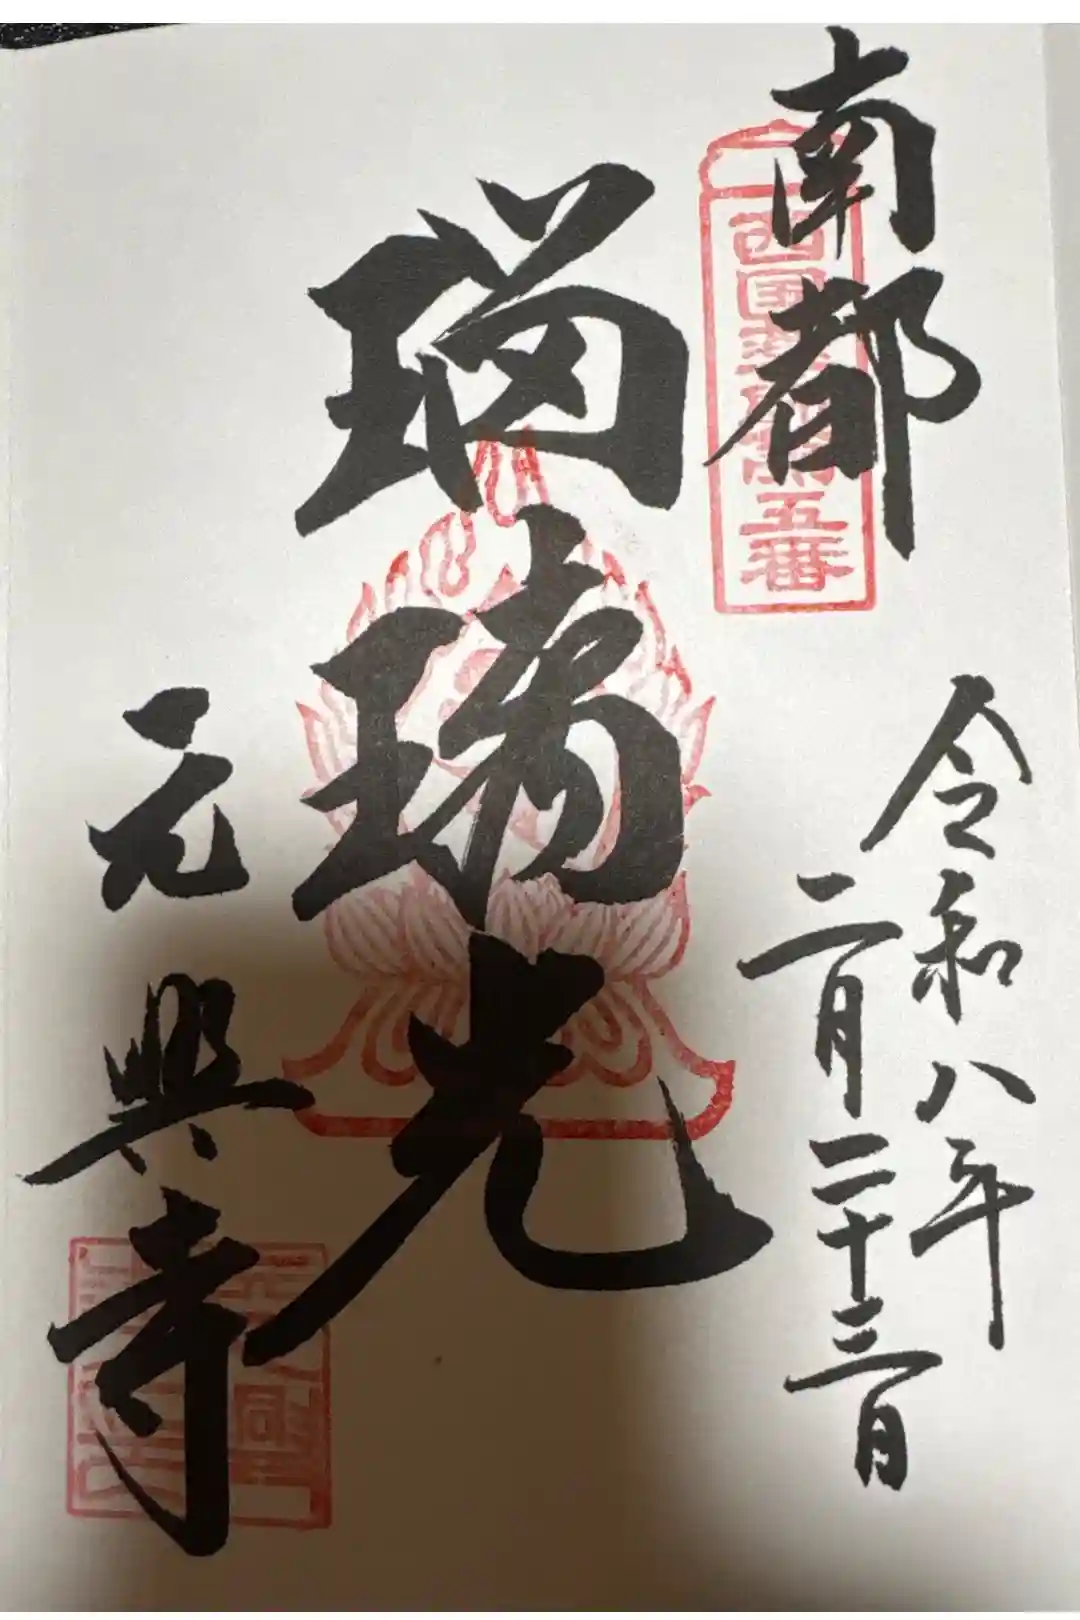 南都
西国薬師第五番
令和八年
二月二十三日
瑠璃光
元興寺